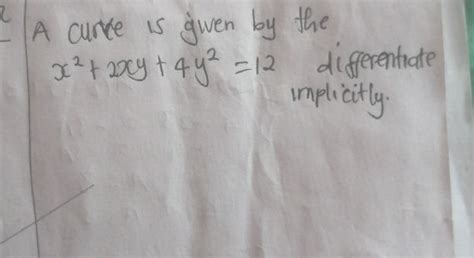 A curve is given by the
x² + 2xy + 4y² = 12 differentiate
implicitly.